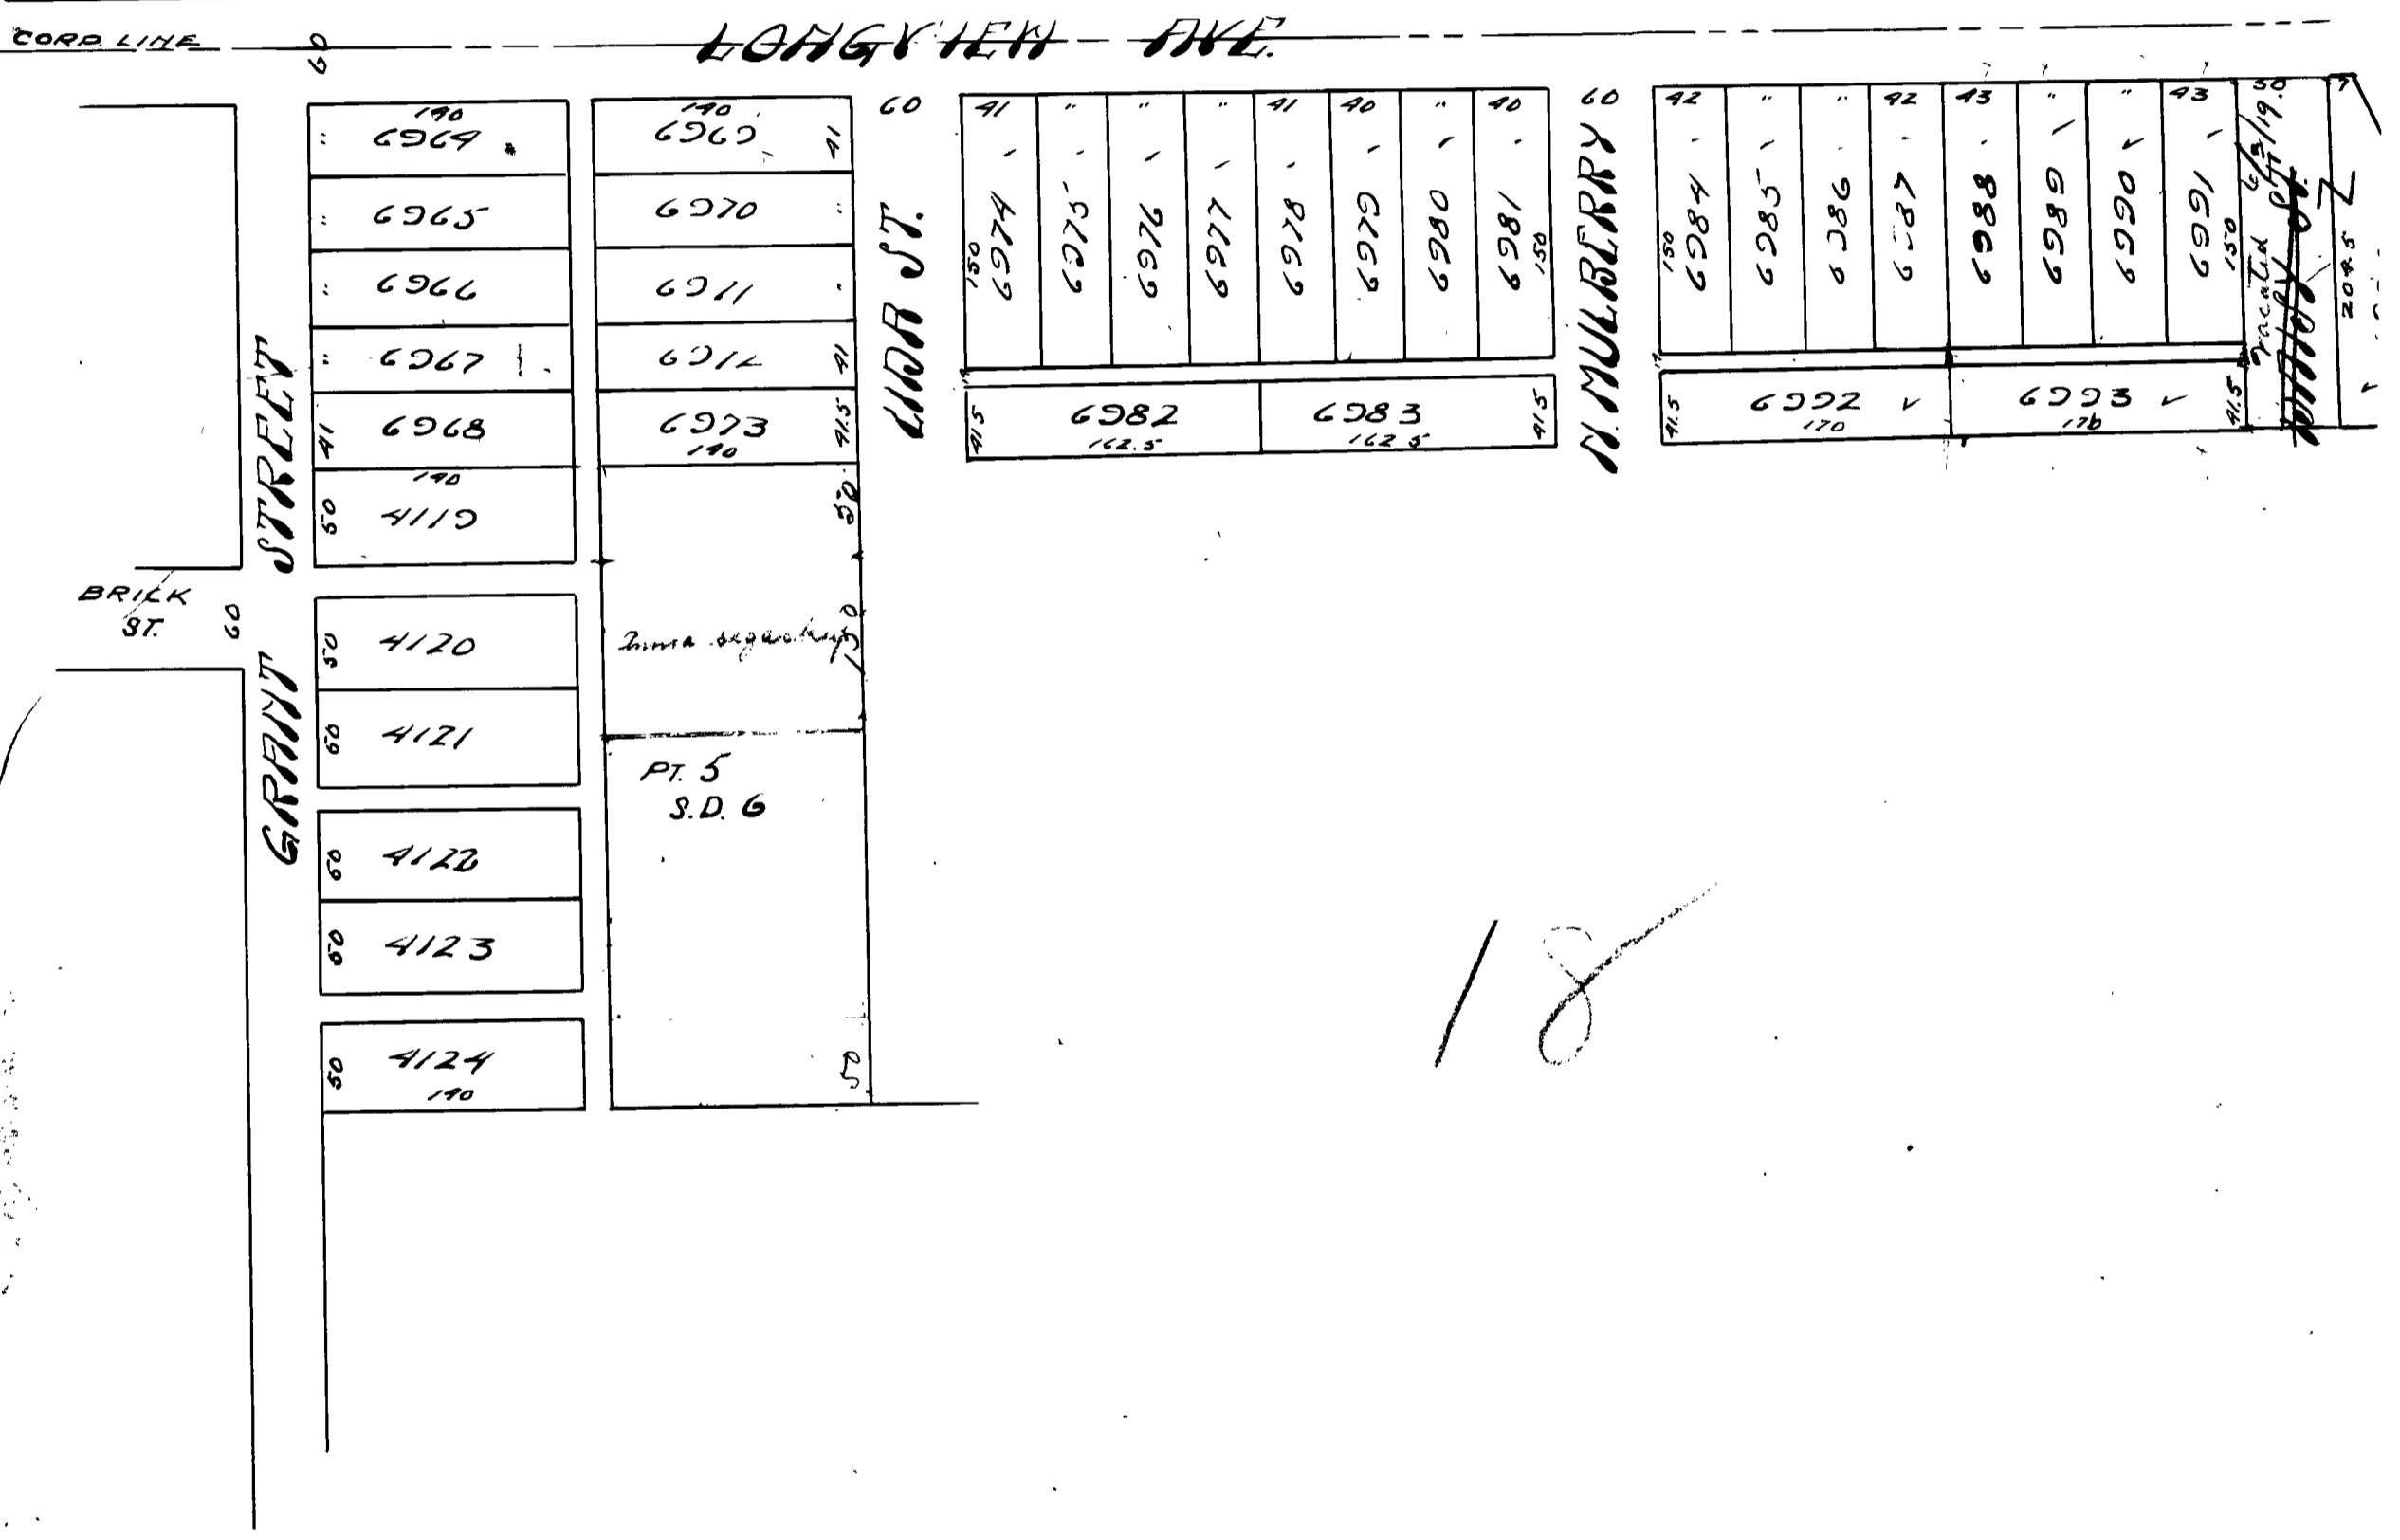 CORP. LINE
60
LONGVIEW AVE.
140
6964
"
6965
"
6966
"
6967
"
6968
41
140
4119
50
4120
50
4121
50
4122
50
4123
50
4124
50
140
140
6969
41
6970
"
6971
"
6972
41
6973
41.5
140
50
150
PT. 5
S.D. 6
50
STREET
GRANT
BRICK
ST.
60
60
ST.
41 " " " 41 40 " 40
150
6974 6975 6976 6977 6978 6979 6980 6981
150
41.5
6982
162.5
6983
162.5
41.5
60
N. MULBERRY
42 " " 42 43 " " 43
150
6984 6985 6986 6987 6988 6989 6990 6991
150
41.5
6992
170
6993
170
41.5
50
Vacated
204.5
7
18